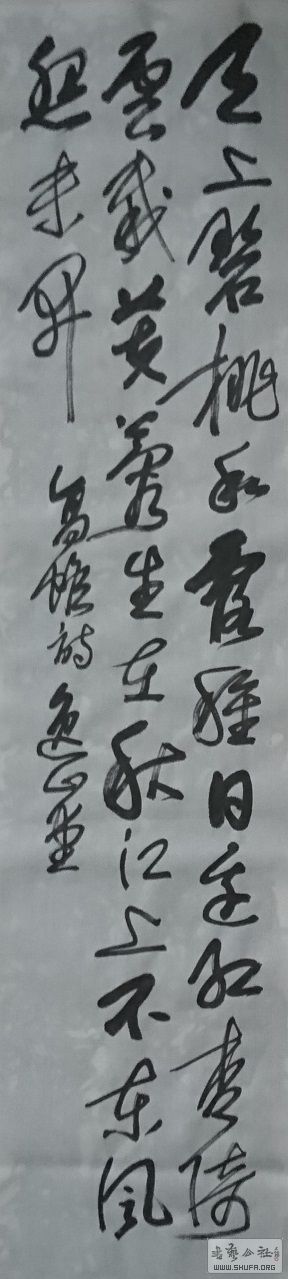 天上碧桃和露種日邊紅杏倚
雲栽芙蓉生在秋江上不東風
怨未開
高蟾詩
书艺公社
WWW.SHUFA.ORG